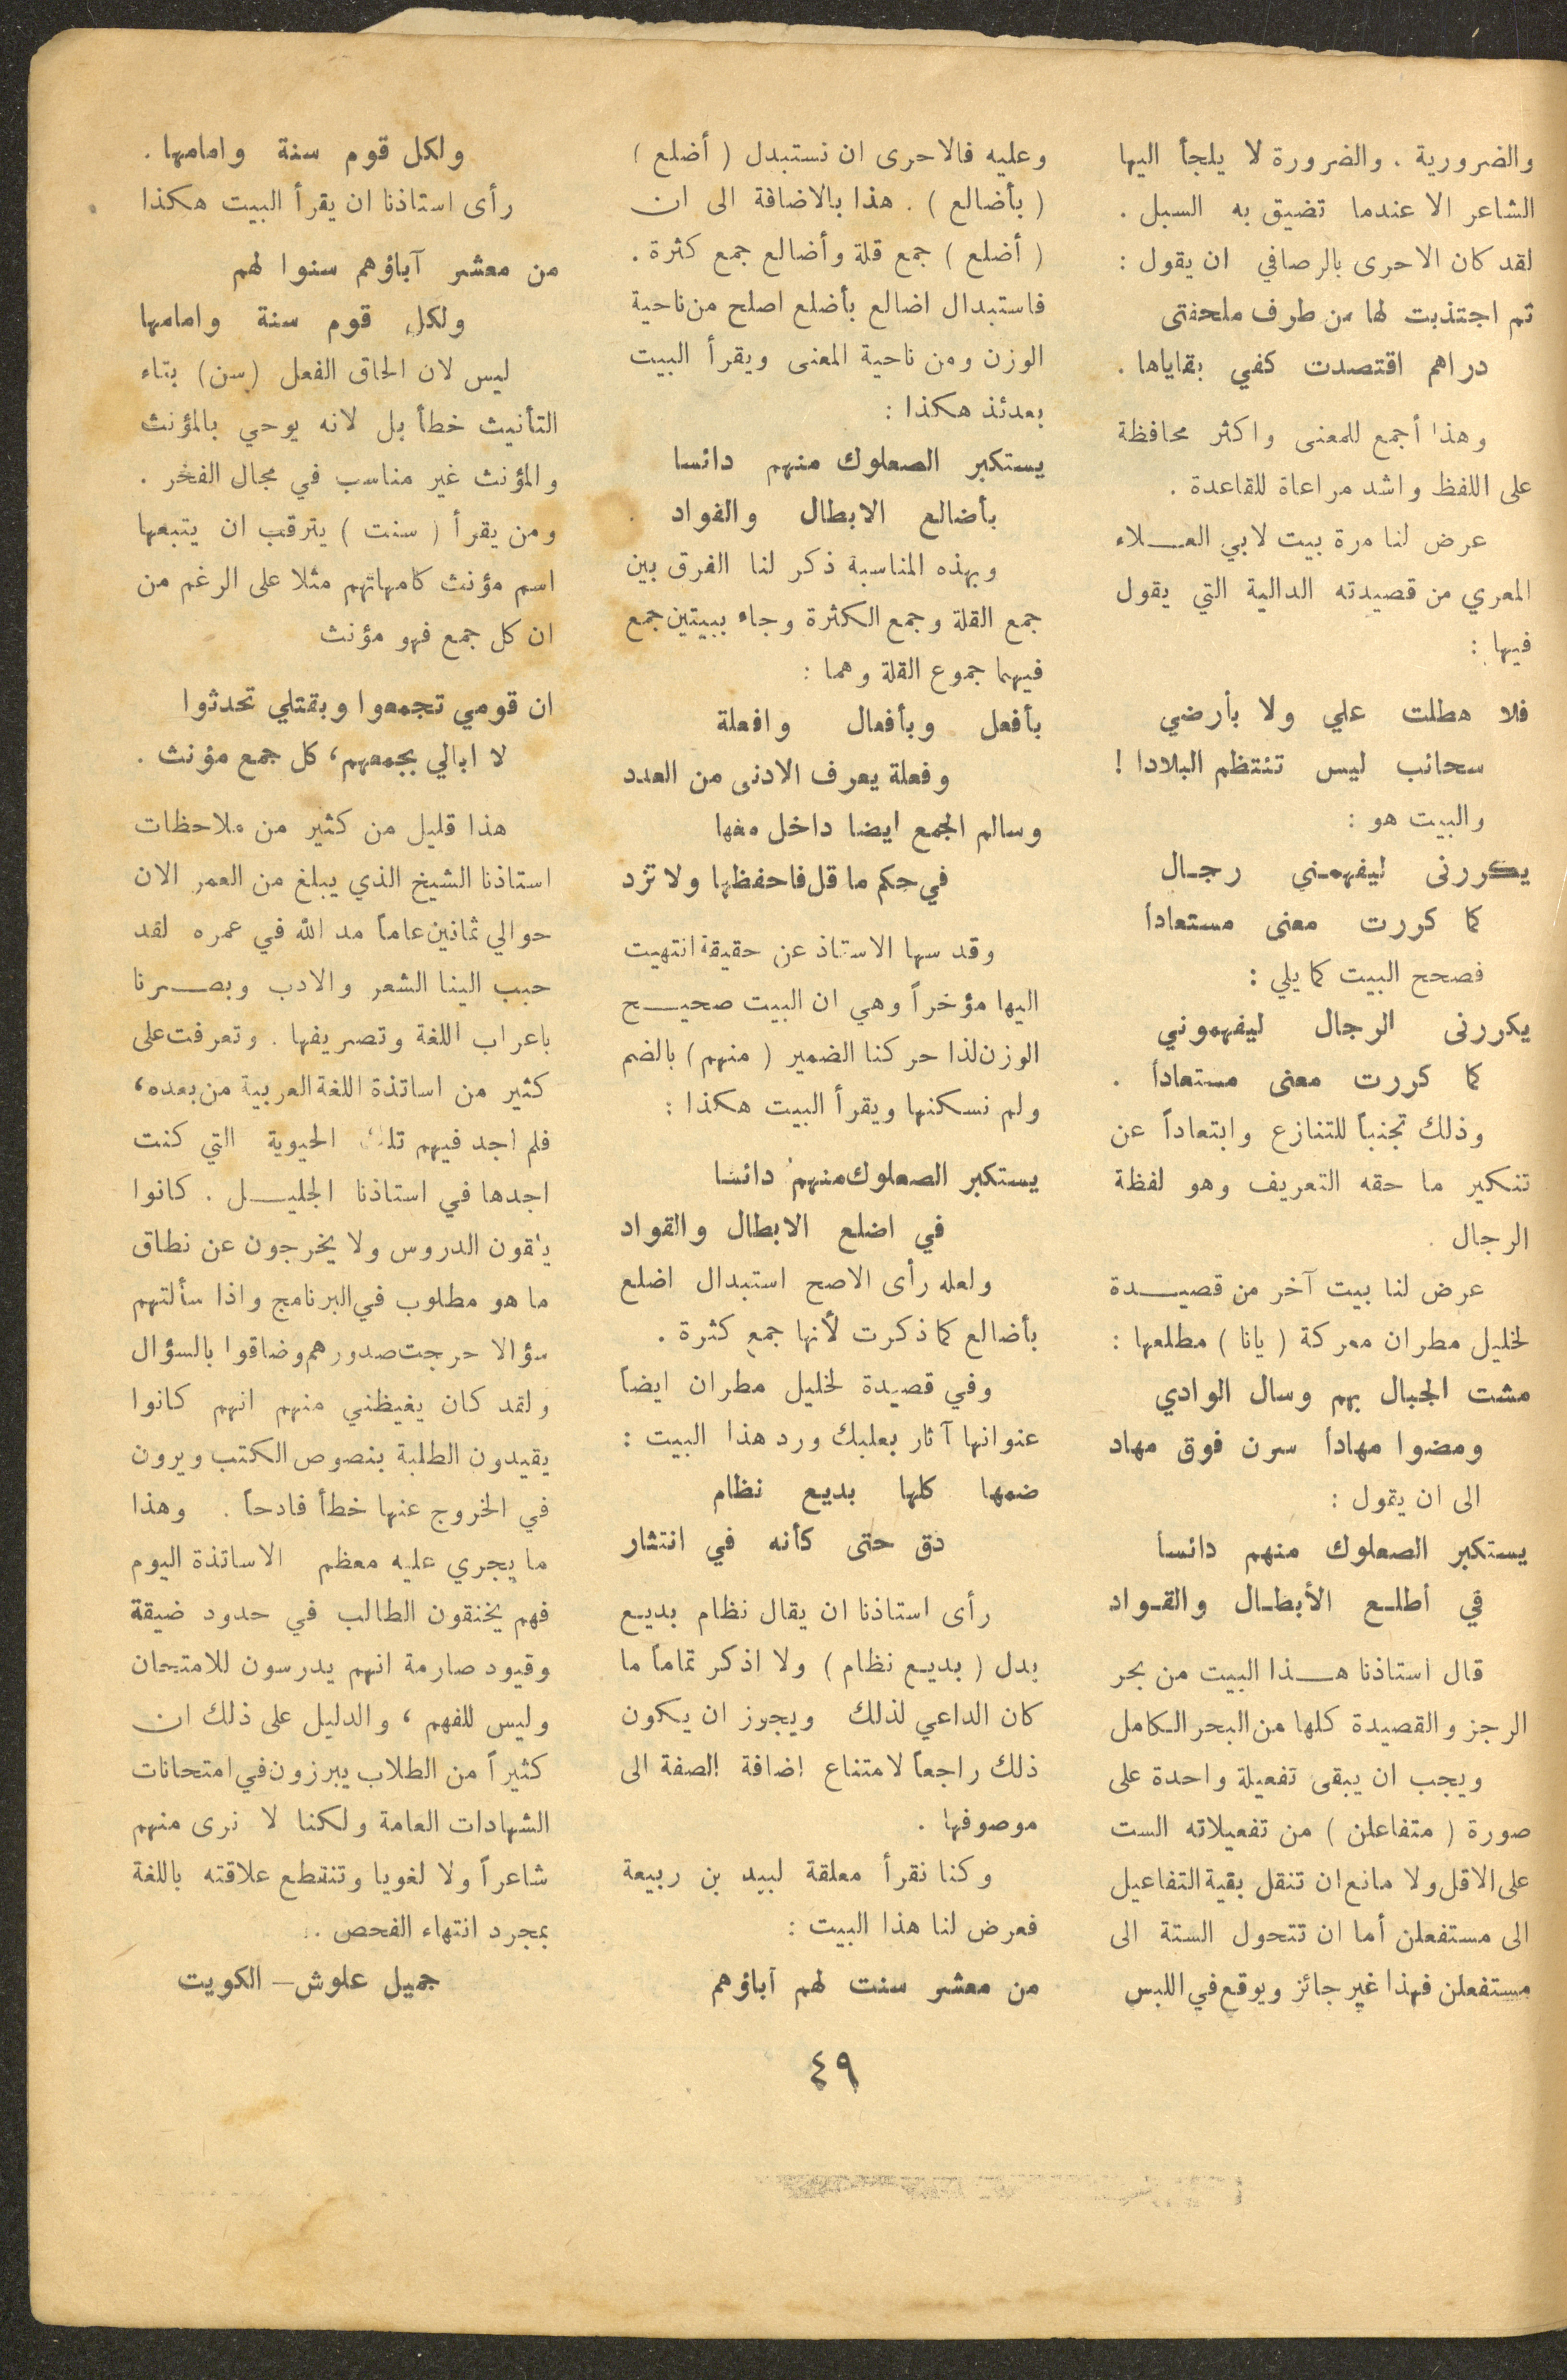 والضرورية . والضرورة لا يلجأ اليها
الشاعر الا عندما تضيق به السبل .
لقد كان الاحرى بالرصافي ان يقول :
ثم اجتذبت لها من طرف ملحفتى
دراهم اقتصدت كفي بقاياها .
وهذا أجمع للمعنى واكثر محافظة
على اللفظ واشد مراعاة للقاعدة .
عرض لنا مرة بيت لابي العــلاء
المعري من قصيدته الدالية التي يقول
فيها :
فلا هطلت علي ولا بأرضي
سحائب ليس تنتظم البلادا !
والبيت هو :
يكررنى ليفهمني رجـال
كما كررت معنى مستعاداً
فصحح البيت كما يلي :
يكررنى الرجال ليفهموني
كما كررت معنى مستعاداً .
وذلك تجنباً للتنازع وابتعاداً عن
تنكير ما حقه التعريف وهو لفظة
الرجال .
عرض لنا بيت آخر من قصيــدة
لخليل مطران معركة ( يانا ) مطلعها :
مشت الجبال بهم وسال الوادي
ومضوا مهاداً سرن فوق مهاد
الى ان يقول :
يستكبر الصعلوك منهم دائساً
في أطلـع الأبطـال والقـواد
قال استاذنا هــذا البيت من بحر
الرجز والقصيدة كلها من البحر الكامل
ويجب ان يبقى تفعيلة واحدة على
صورة ( متفاعلن ) من تفعيلاته الست
على الاقل ولا مانع ان تنقل بقية التفاعيل
الى مستفعلن أما ان تتحول الستة الى
مستفعلن فهذا غير جائز ويوقع في اللبس
وعليه فالاحرى ان نستبدل ( أضلع )
( بأضالع ) . هذا بالاضافة الى ان
( أضلع ) جمع قلة وأضالع جمع كثرة .
فاستبدال اضالع بأضلع اصلح من ناحية
الوزن ومن ناحية المعنى ويقرأ البيت
بعدئذ هكذا :
يستكبر الصعلوك منهم دائسا
بأضالع الابطال والقواد .
وبهذه المناسبة ذكر لنا الفرق بين
جمع القلة وجمع الكثرة وجاء ببيتين جمع
فيهما جموع القلة وهما :
بأفعل وبأفعال وافعلة
وفعلة يعرف الادنى من العدد
وسالم الجمع ايضا داخل معها
في حكم ما قل فاحفظها ولا تزد
وقد سها الاستاذ عن حقيقة انتهيت
اليها مؤخراً وهي ان البيت صحيــح
الوزن لذا حركنا الضمير ( منهم ) بالضم
ولم نسكنها ويقرأ البيت هكذا :
يستكبر الصعلوك منهمُ دائسا
في اضلع الابطال والقواد
ولعله رأى الاصح استبدال اضلع
بأضالع كما ذكرت لأنها جمع كثرة .
وفي قصيدة لخليل مطران ايضاً
عنوانها آثار بعلبك ورد هذا البيت :
ضمها كلها بديع نظام
دق حتى كأنه في انتثار
رأى استاذنا ان يقال نظام بديـع
بدل ( بديـع نظام ) ولا اذكر تماماً ما
كان الداعي لذلك ويجوز ان يكون
ذلك راجعاً لامتناع اضافة الصفة الى
موصوفها .
وكنا نقرأ معلقة لبيد بن ربيعة
فعرض لنا هذا البيت :
من معشر سنت لهم آباؤهم
ولكل قوم سنة وامامها .
رأى استاذنا ان يقرأ البيت هكذا
من معشر آباؤهم سنوا لهم
ولكل قوم سنة وامامها
ليس لان الحاق الفعل (سن) بتاء
التأنيث خطأ بل لانه يوحي بالمؤنث
والمؤنث غير مناسب في مجال الفخر .
ومن يقرأ ( سنت ) يترقب ان يتبعها
اسم مؤنث كامهاتهم مثلا على الرغم من
ان كل جمع فهو مؤنث
ان قومي تجمعوا وبقتلي تحدثوا
لا ابالي بجمعهم، كل جمع مؤنث .
هذا قليل من كثير من ملاحظات
استاذنا الشيخ الذي يبلغ من العمر الان
حوالي ثمانين عاماً مد الله في عمره لقد
حبب الينا الشعر والادب وبصــرنا
باعراب اللغة وتصريفها . وتعرفت على
كثير من اساتذة اللغة العربية من بعده،
فلم اجد فيهم تلك الحيوية التي كنت
اجدها في استاذنا الجليــل . كانوا
يلقون الدروس ولا يخرجون عن نطاق
ما هو مطلوب في البرنامج واذا سألتهم
سؤالا حرجت صدورهم وضاقوا بالسؤال
ولقد كان يغيظني منهم انهم كانوا
يقيدون الطلبة بنصوص الكتب ويرون
في الخروج عنها خطأ فادحاً . وهذا
ما يجري عليه معظم الاساتذة اليوم
فهم يخنقون الطالب في حدود ضيقة
وقيود صارمة انهم يدرسون للامتحان
وليس للفهم ، والدليل على ذلك ان
كثيراً من الطلاب يبرزون في امتحانات
الشهادات العامة ولكنا لا نرى منهم
شاعراً ولا لغويا وتنقطع علاقته باللغة
بمجرد انتهاء الفحص .
جميل علوش – الكويت
٤٩